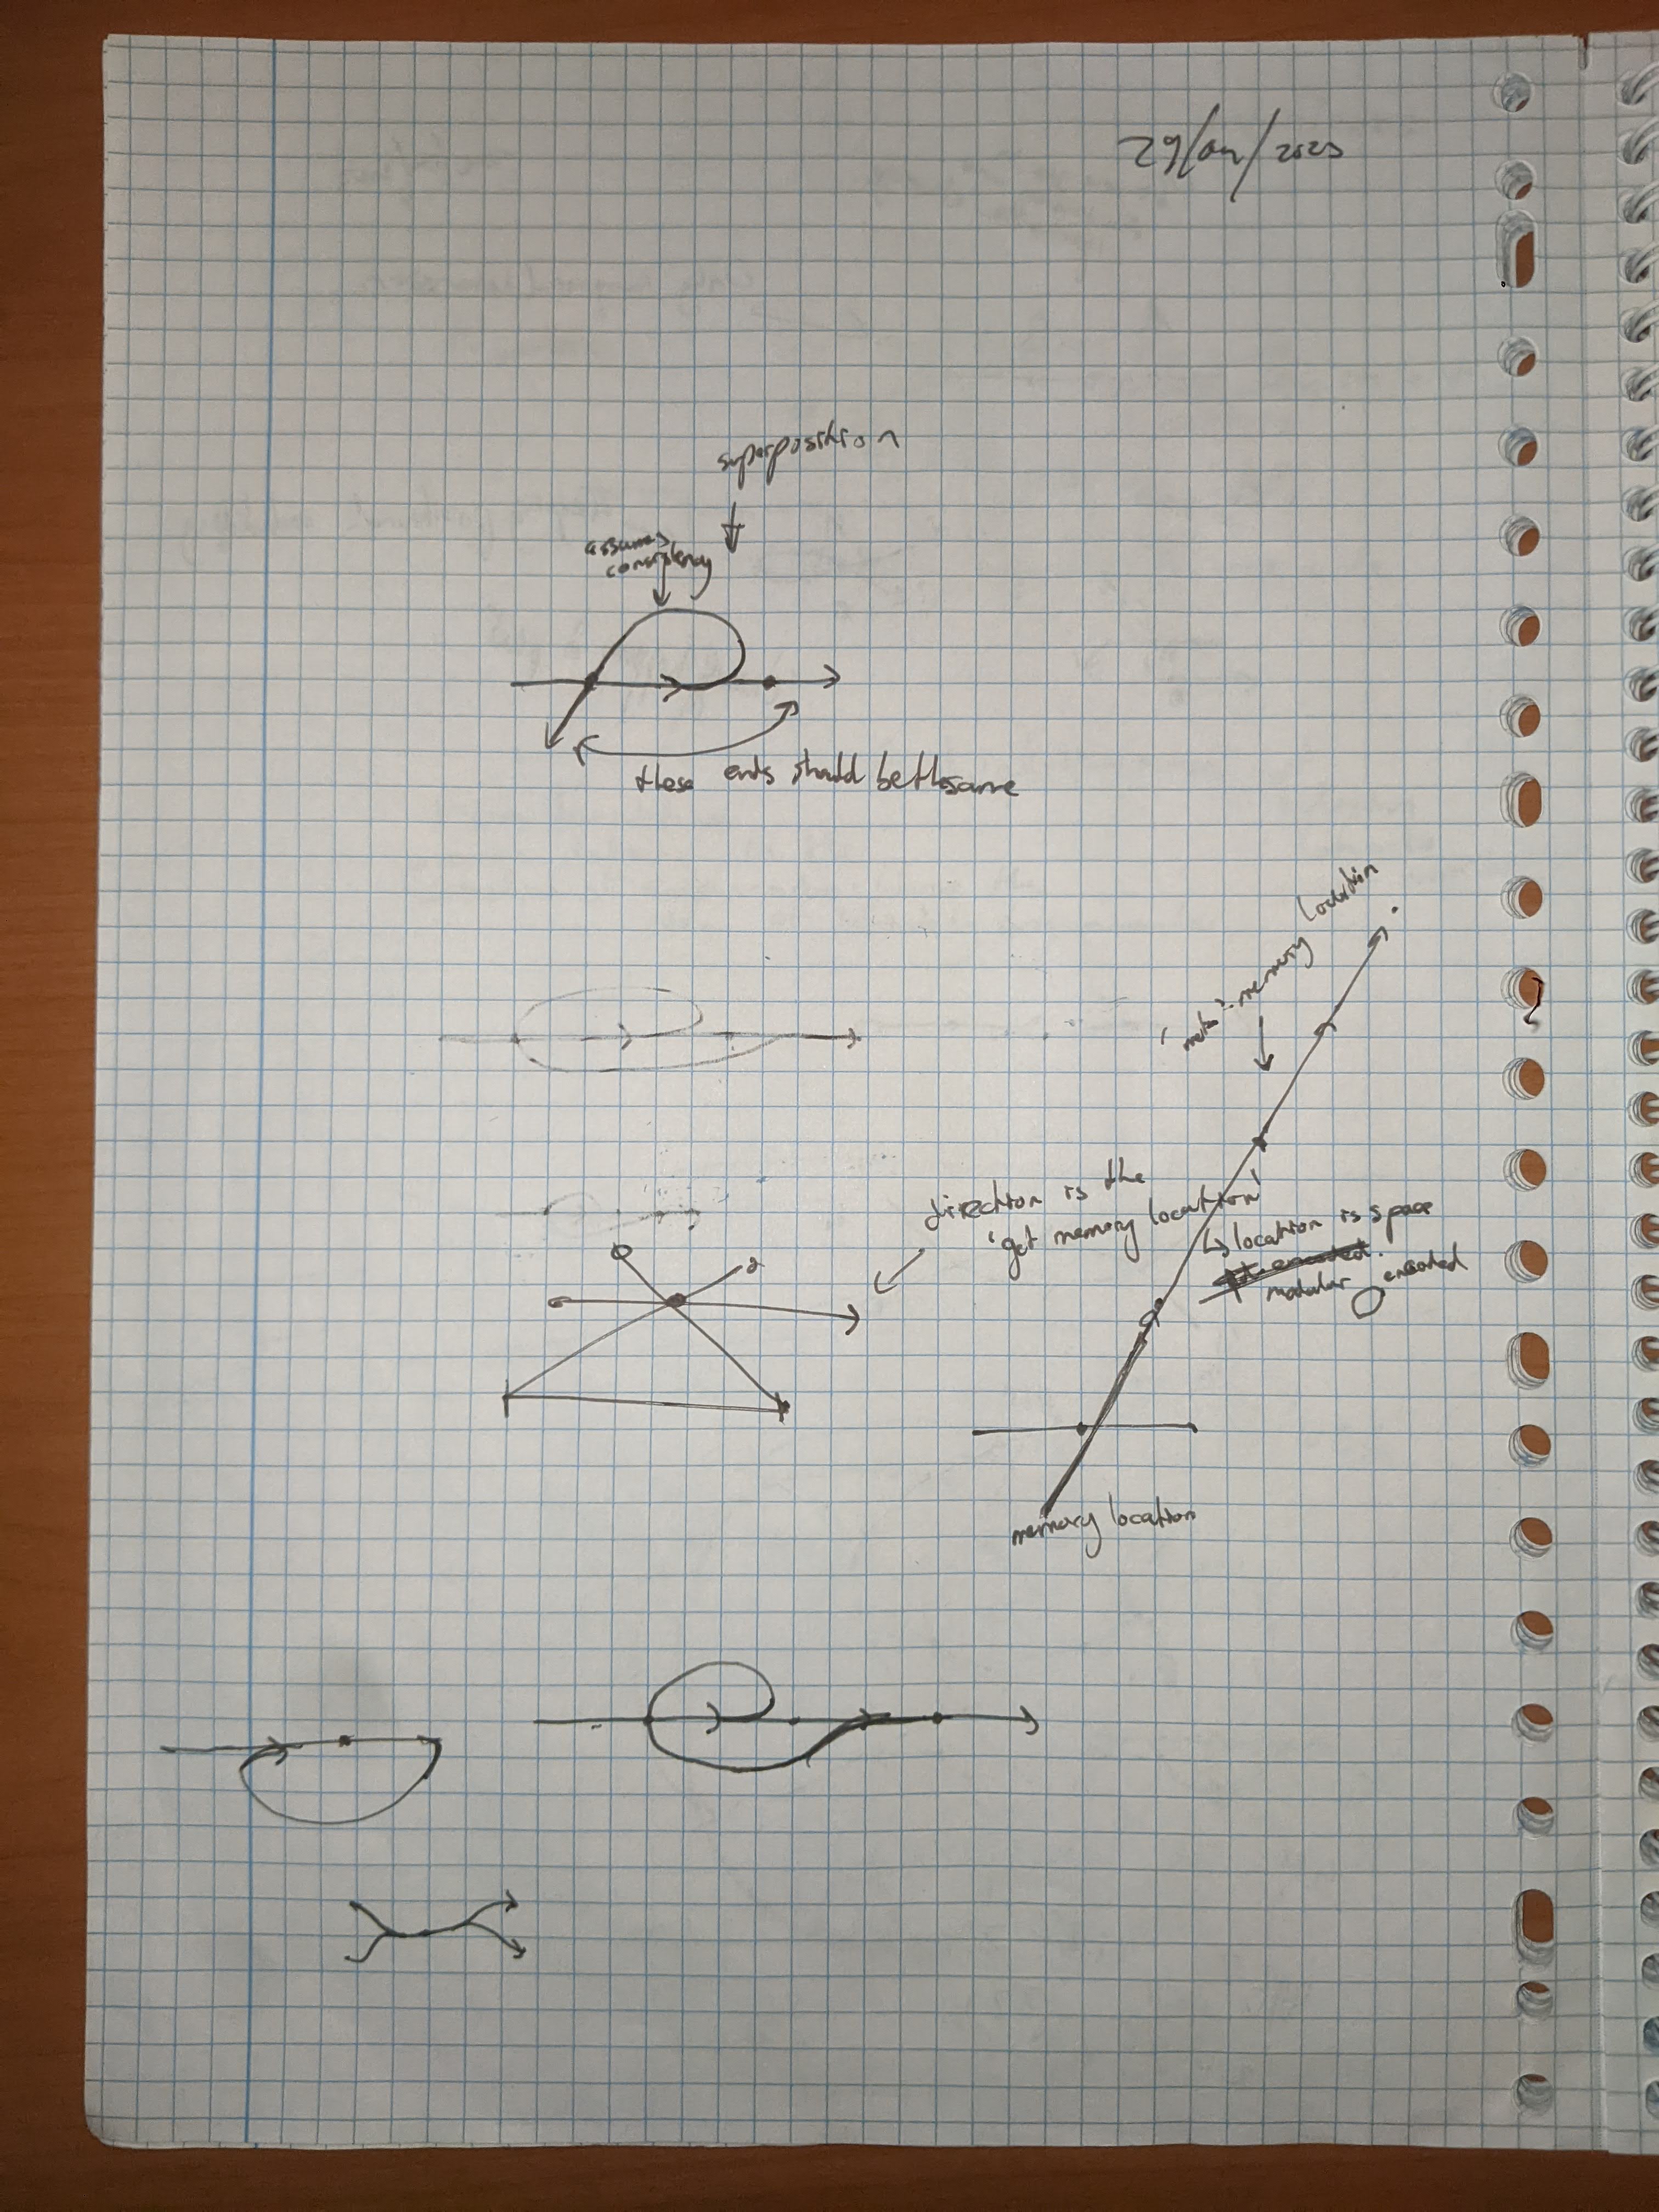 superposition
assumes
consistency
these ends should be the same
'meta'-memory location
direction is the
'get memory location'
↳ location is space
modular encoded
memory location